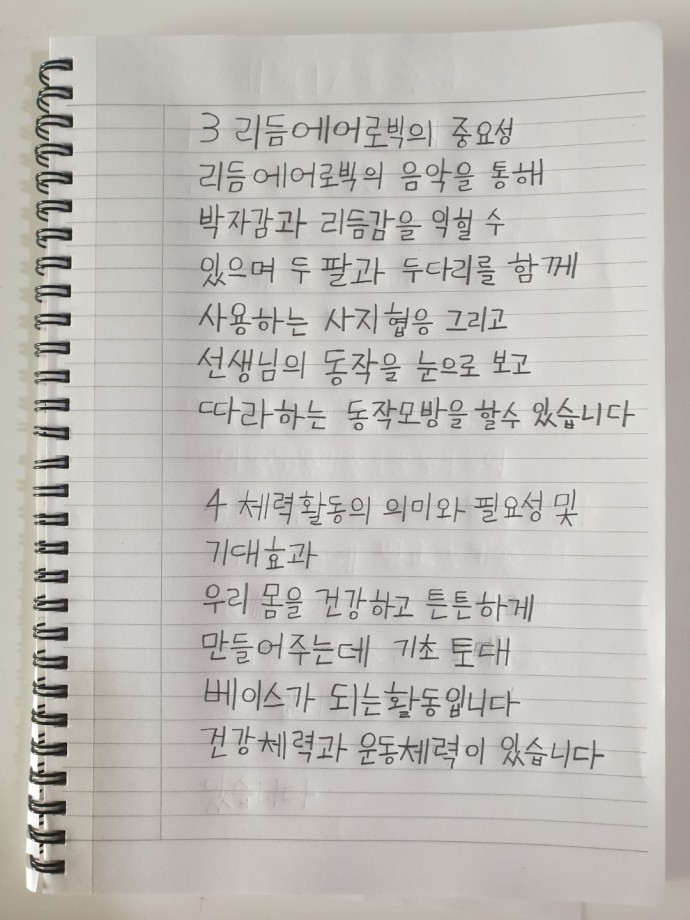 3 리듬에어로빅의 중요성
리듬에어로빅의 음악을 통해
박자감과 리듬감을 익힐 수
있으며 두 팔과 두다리를 함께
사용하는 사지협응 그리고
선생님의 동작을 눈으로 보고
따라하는 동작모방을 할수 있습니다
4 체력활동의 의미와 필요성 및
기대효과
우리 몸을 건강하고 튼튼하게
만들어주는데 기초 토대
베이스가 되는활동입니다
건강체력과 운동체력이 있습니다